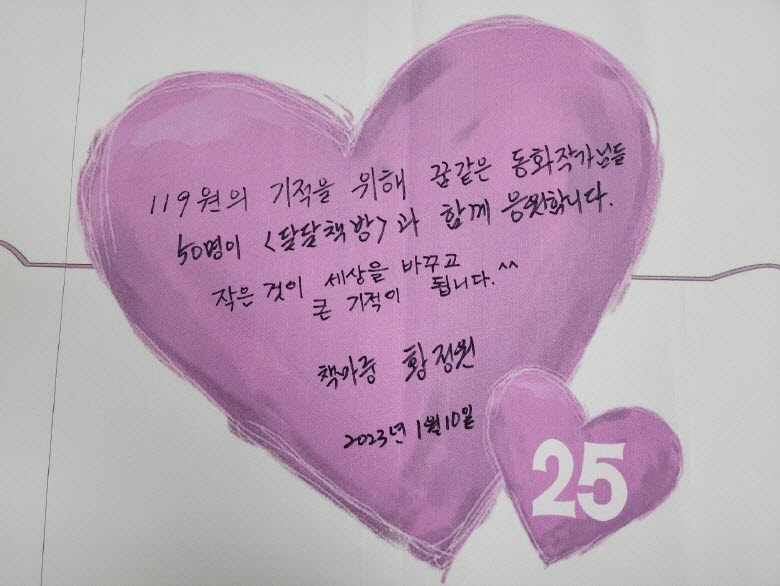 119원의 기적을 위해 꿈같은 동화작가님들
50명이 <달달책방>과 함께 응원합니다.
작은 것이 세상을 바꾸고
큰 기적이 됩니다.^^
책마중 황정원
2023년 1월 10일
25